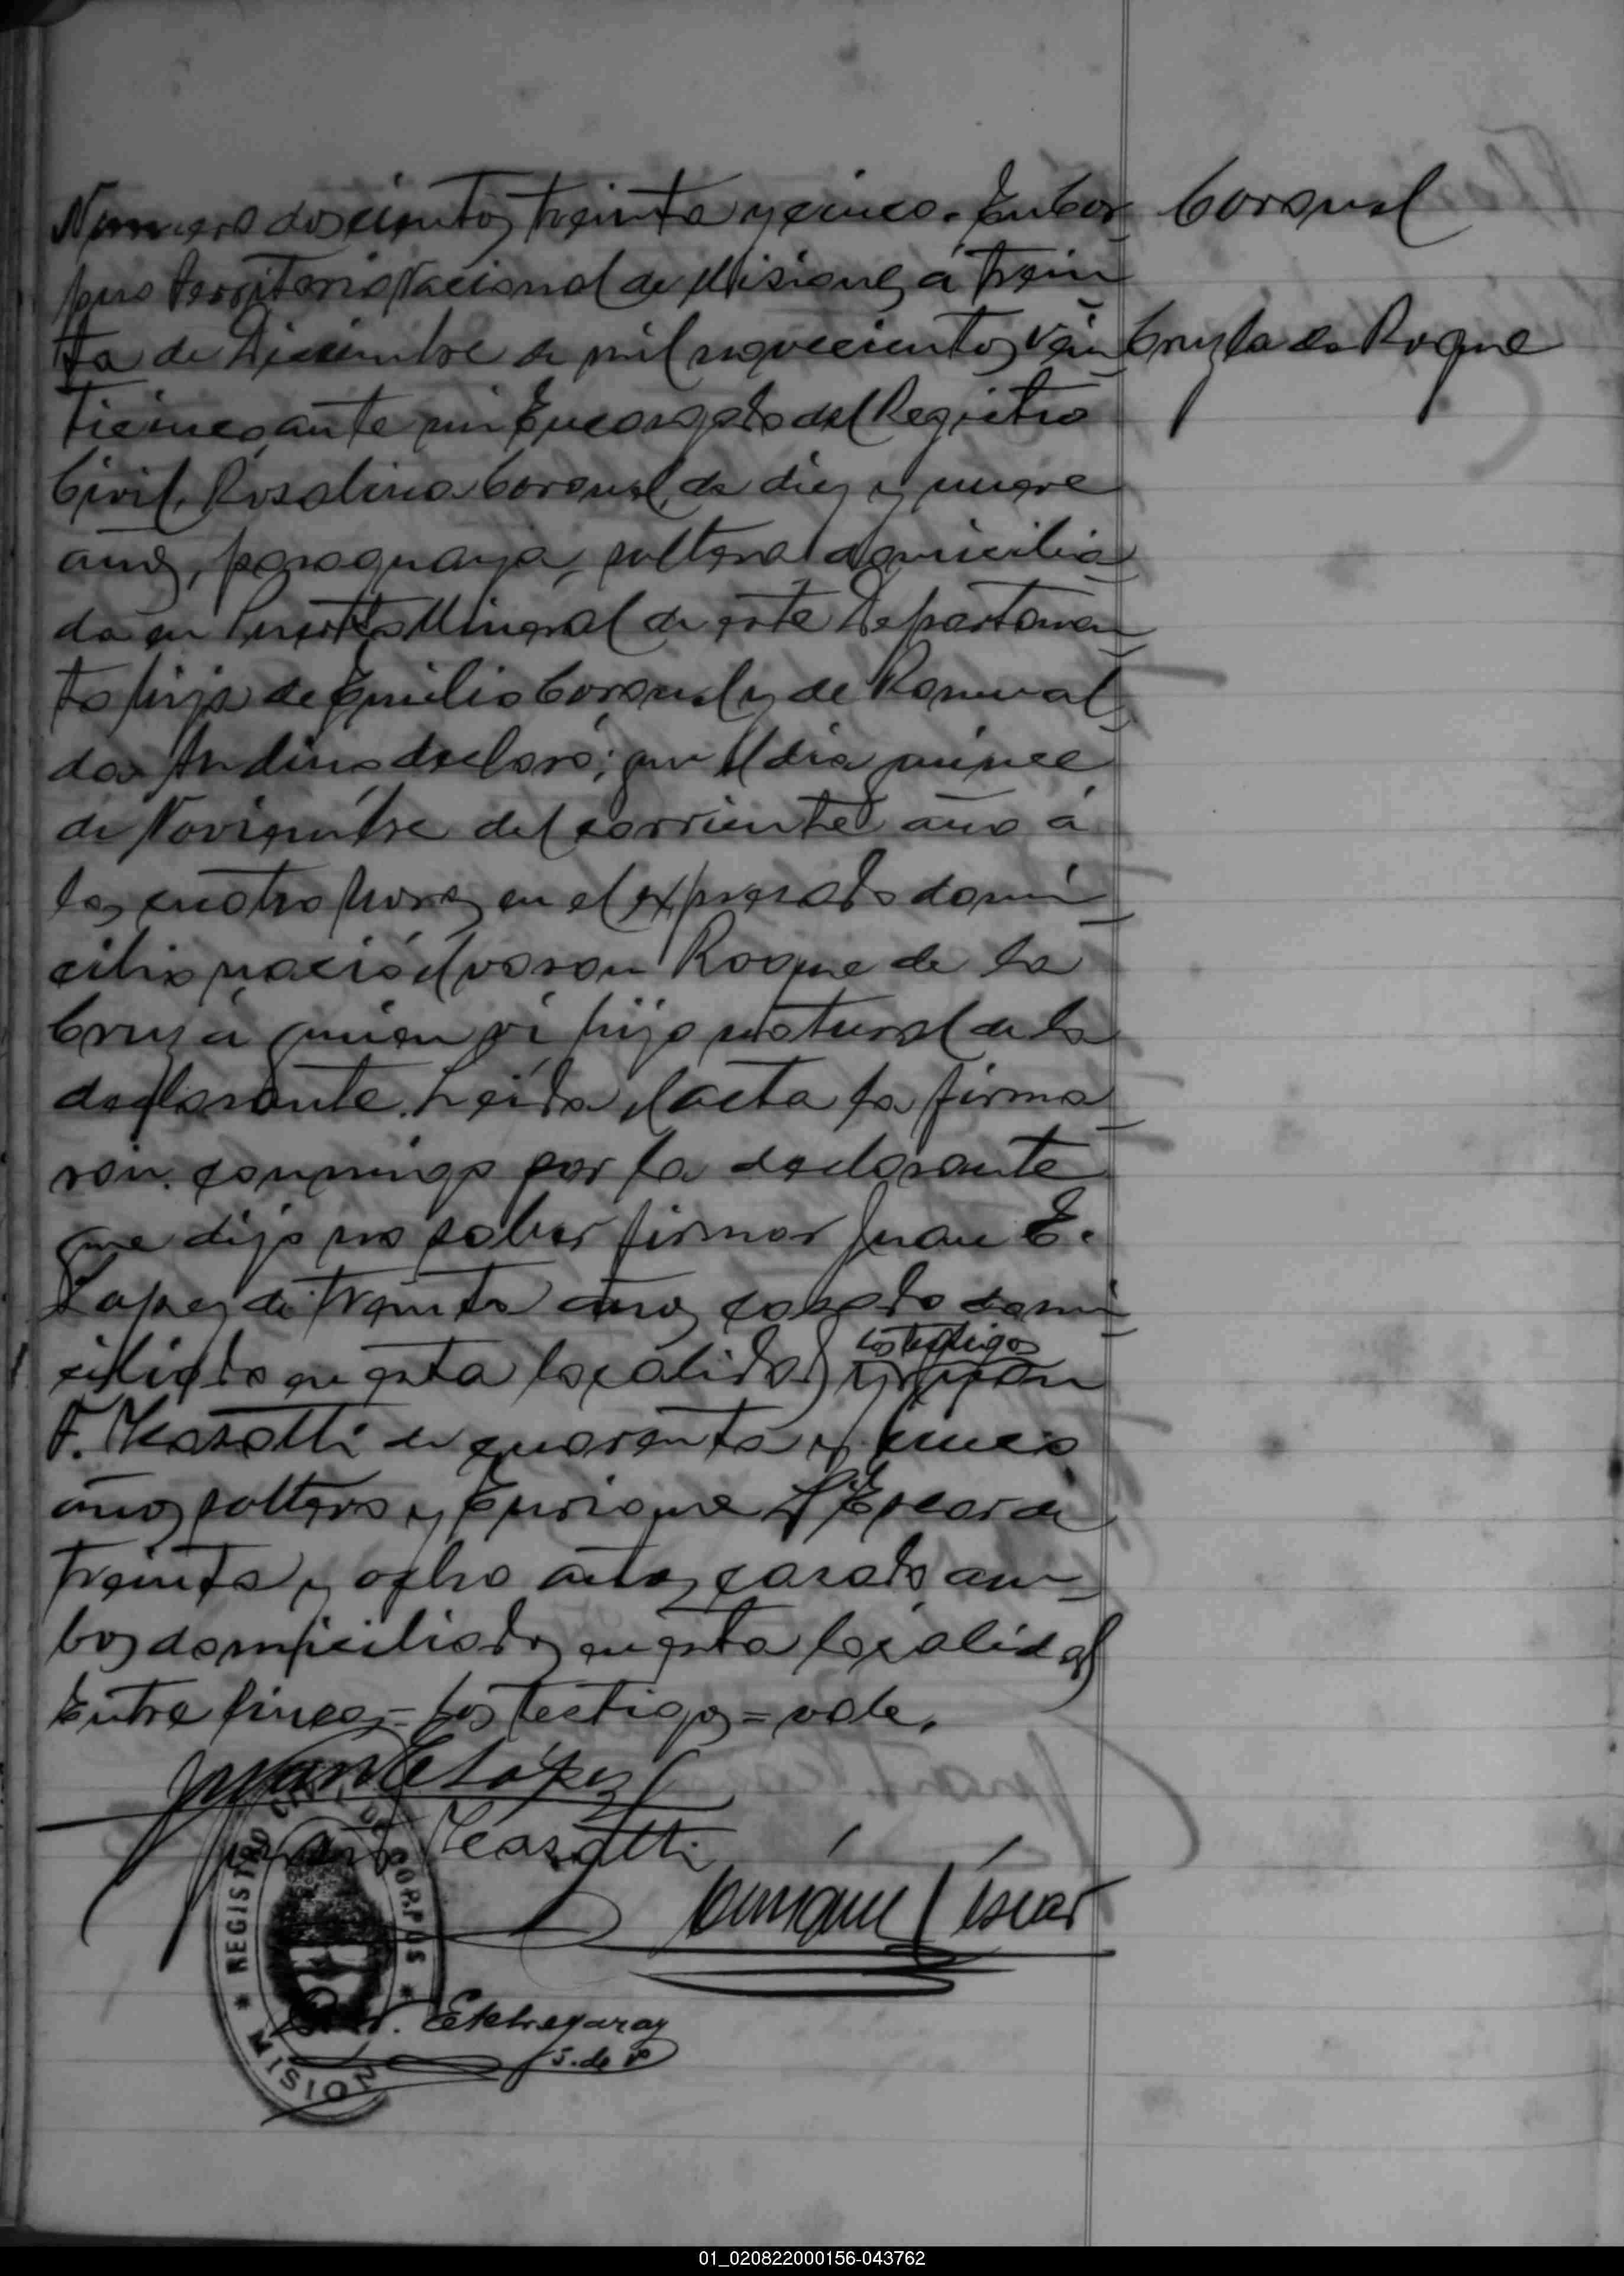 Numero doscientos treinta y cinco. En Cor
pus territorio Nacional de Misiones, á trein
ta de Diciembre de mil novecientos vein
ticinco, ante mi Encargado del Registro
Civil, Rosalina Coronel, de diez y nueve
años, paraguaya, soltera domicilia
da en Puerto Mineral de este Departamen
to hija de Emilio Coronel y de Romual
da declaró; que el dia quince
de Noviembre del corriente año á
las cuatro horas en el expresado domi
cilio nació el varon Roque de la
Cruz á quien vi hijo natural de la
declarante. Leida el acta la firma
ron conmigo por la declarante
que dijo no saber firmar Juan E.
Lopez de treinta años casado domi
ciliado en esta localidad y los testigos Juan
F. de cuarenta y cinco
años soltero y Enrique L'Escar de
treinta y ocho años casado am
bos domiciliados en esta localidad
Entre lineas = los testigos = vale.
Juan E López
Enrique L'Escar
Etchegaray
S. de P
Coronel
Cruz la de Roque
REGISTRO CIVIL DE CORPUS
* MISIONES *
01_020822000156-043762